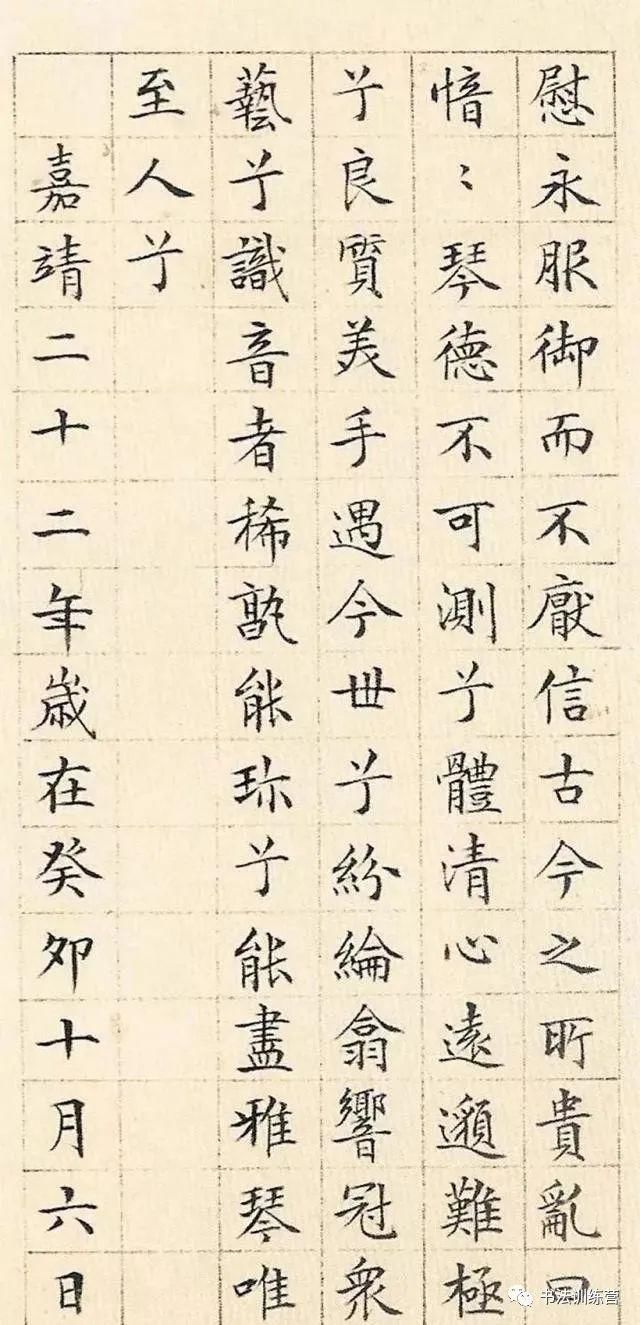 慰永服御而不厭信古今之所貴亂曰
愔〻琴德不可測兮體清心遠邈難極
兮良質美手遇今世兮紛綸翕響冠衆
藝兮識音者稀孰能珎兮能盡雅琴唯
至人兮
嘉靖二十二年歲在癸卯十月六日
书法训练营